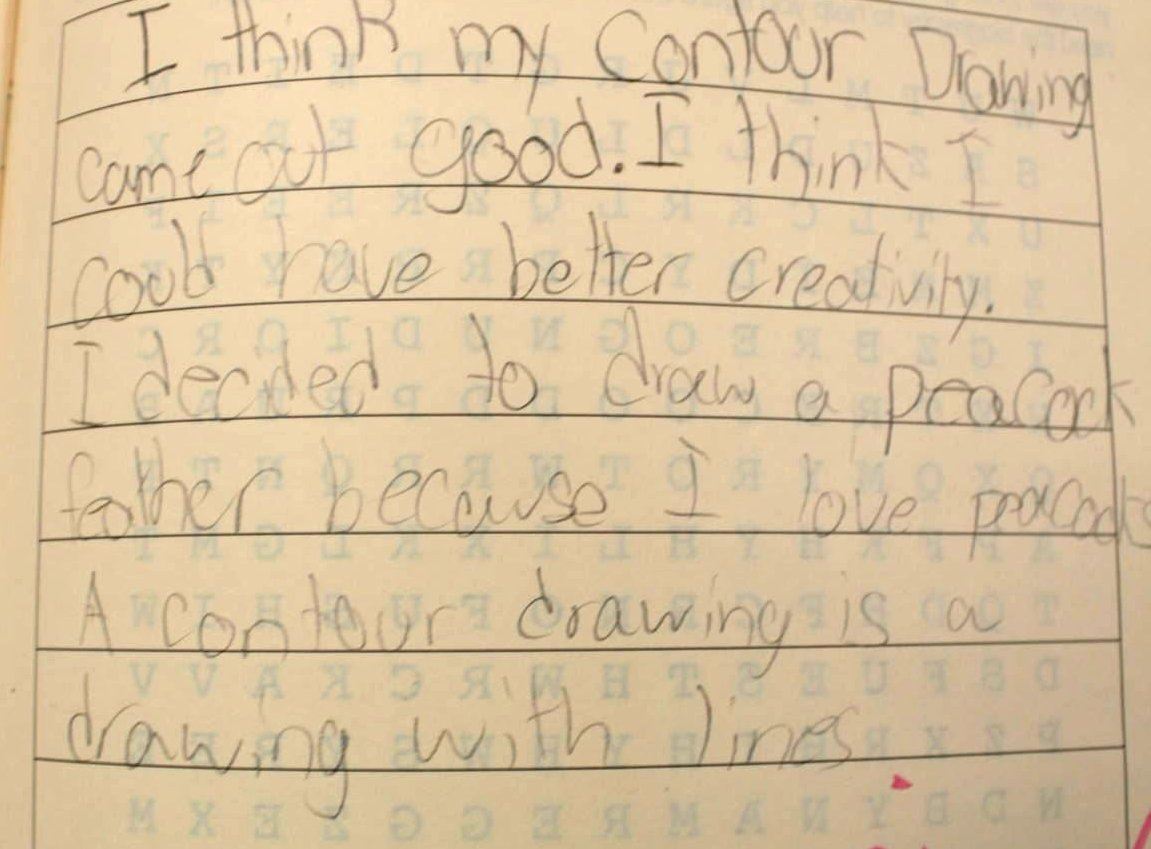 I think my Contour Drawing
came out good. I think I
could have better creativity.
I decided to draw a peacock
feather because I love peacocks
A contour drawing is a
drawing with lines